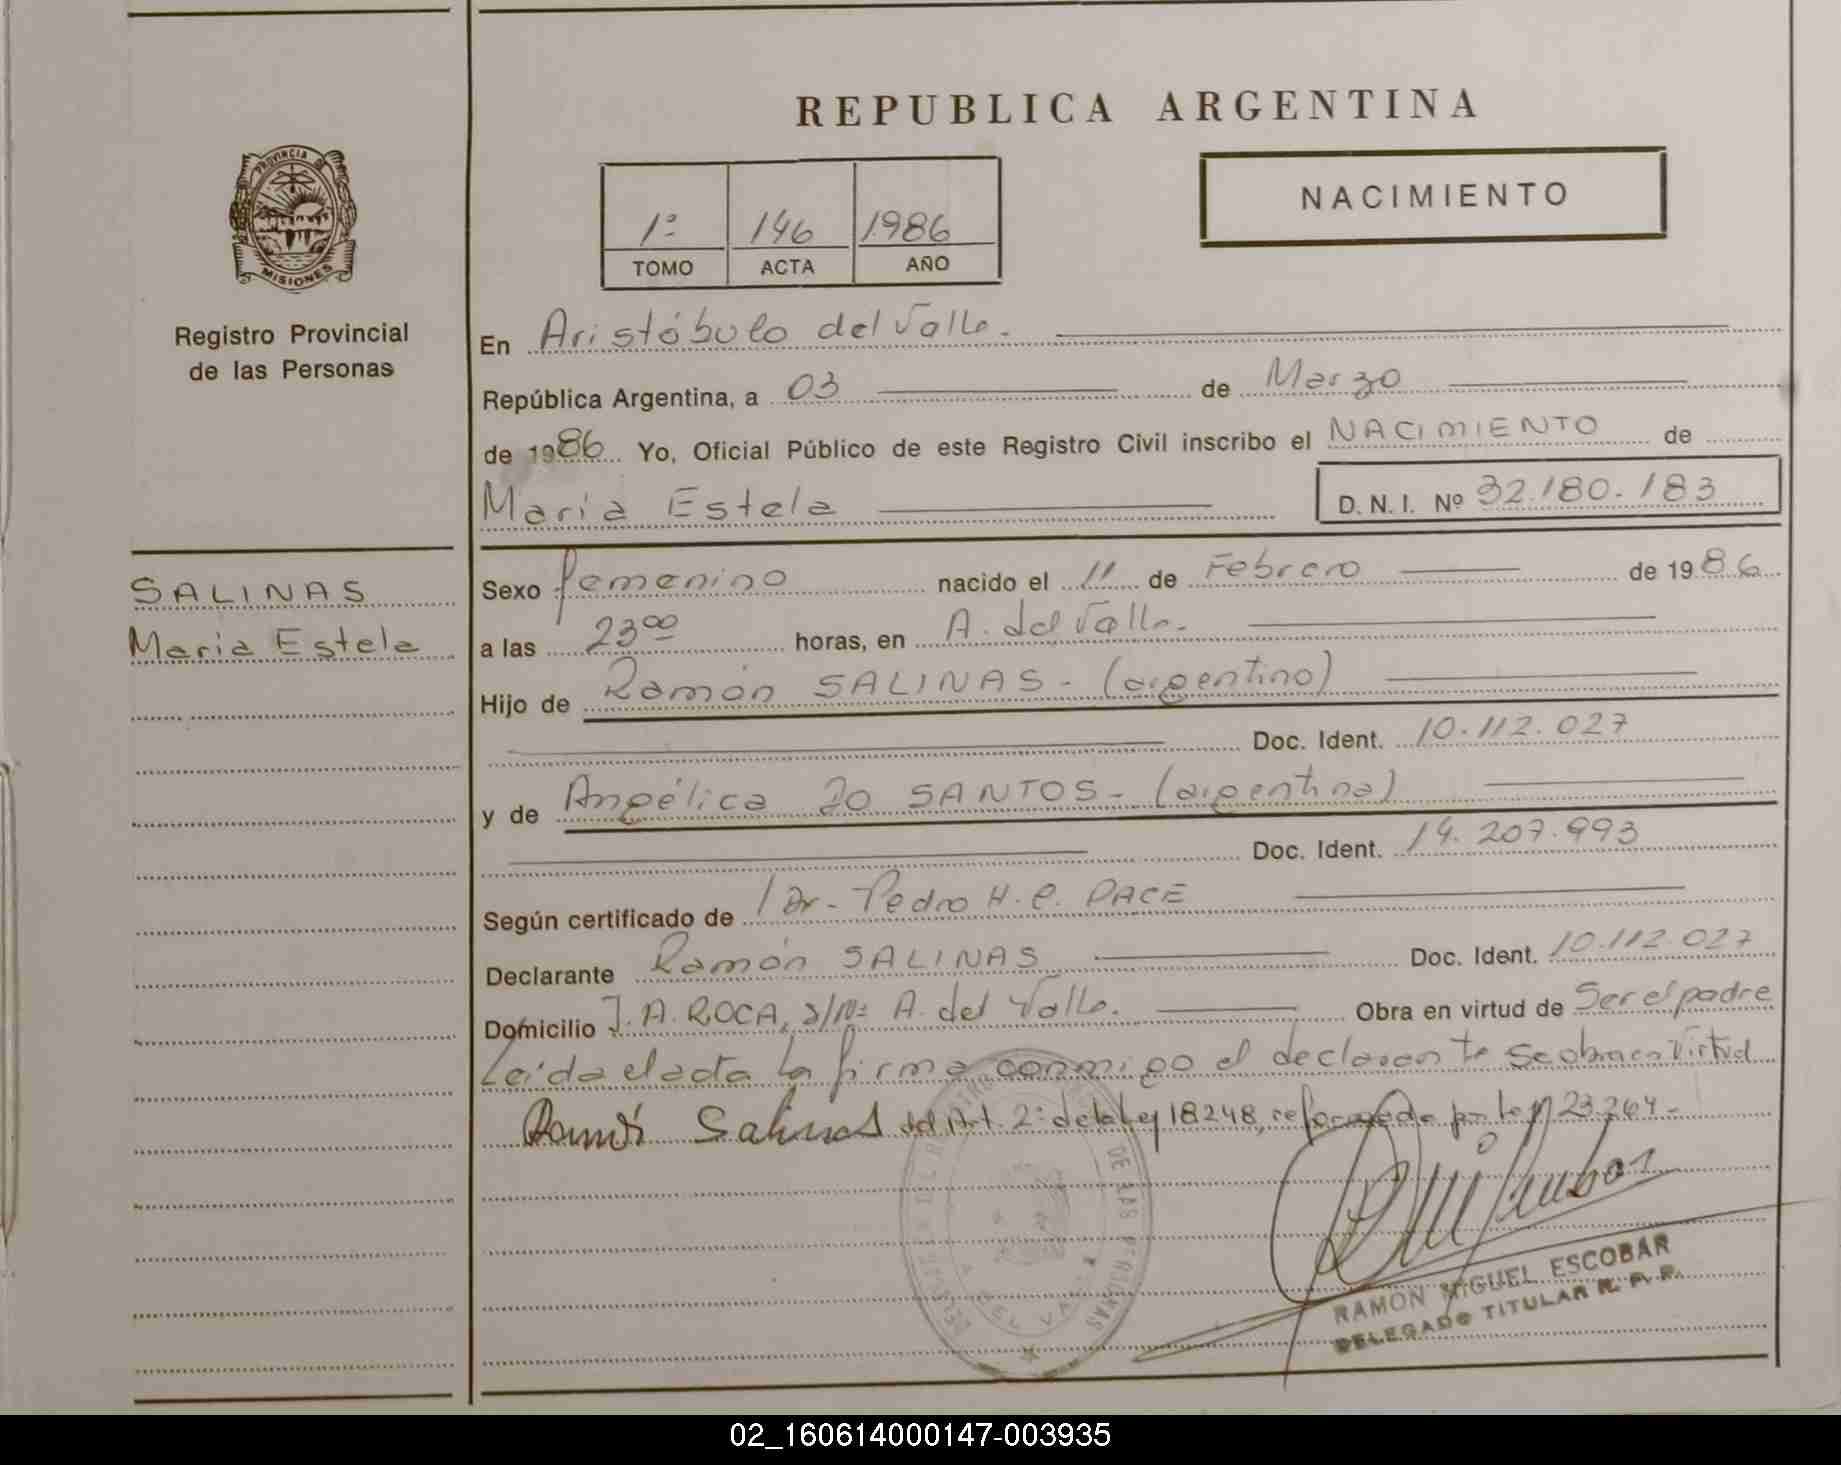 REPUBLICA ARGENTINA
NACIMIENTO
1º 146 1986
TOMO ACTA AÑO
PROVINCIA DE
MISIONES
Registro Provincial
de las Personas
En Aristóbulo del Valle.
República Argentina, a 03 de Marzo
de 1986 Yo, Oficial Público de este Registro Civil inscribo el NACIMIENTO de
María Estela D.N.I. Nº 32.180.183
SALINAS
María Estela
Sexo femenino nacido el 11 de Febrero de 1986
a las 23⁰⁰ horas, en A. del Valle.
Hijo de Ramón SALINAS - (argentino)
Doc. Ident. 10.112.027
y de Angélica DO SANTOS - (argentina)
Doc. Ident. 14.207.993
Según certificado de Dr. Pedro H. C. PACE
Declarante Ramón SALINAS Doc. Ident. 10.112.027
Domicilio J. A. ROCA, s/Nº A. del Valle. Obra en virtud de Ser el padre
Leída el acta la firma conmigo el declarante se obra en virtud
Ramón Salinas del Art. 2º de la Ley 18248, reformada por Ley 23.264-
DE LAS PERSONAS
RAMON MIGUEL ESCOBAR
DELEGADO TITULAR R. P. P.
02_160614000147-003935